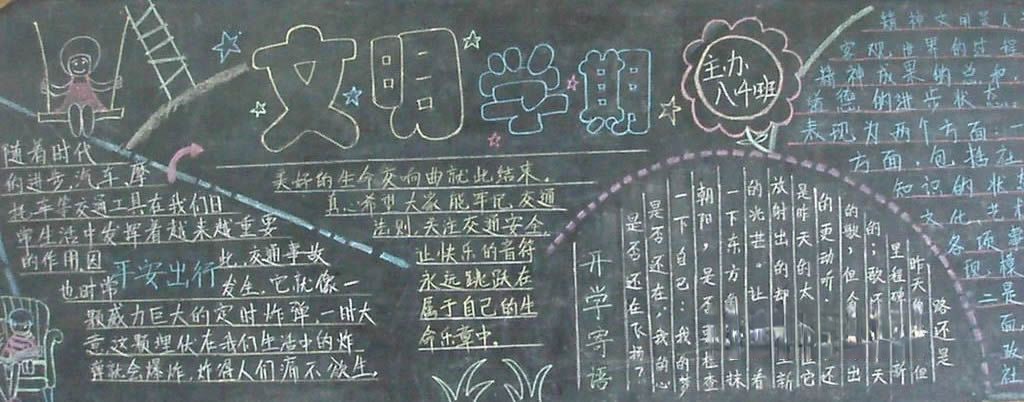 文明学期
主办
八(4)班
随着时代
的进步，汽车、摩
托车等交通工具在我们日
常生活中发挥着越来越重要
的作用，因
此，交通事故
也时常
平安出行
发生，它就像一
颗威力巨大的定时炸弹，一时大
意，这颗埋伏在我们生活中的炸
弹就会爆炸，炸得人们痛不欲生。
美好的生命交响曲就此结束。
真心希望大家能牢记交通
法则，关注交通安全，
让快乐的音符
永远跳跃在
属于自己的生
命乐章中。
开学寄语
路还是
昨天的 但
里程碑 斯
的；歌还 天
的歌，但 出
的更动听； 还
是昨天的太 它
放射出的却 二新
的光芒。让 看
一下东方 一抹
朝阳，是否 检查
一下自己：我的梦
是否还在，我的心
是否还在飞扬？
精神文明是人
客观世界的过程
精神成果的总和，
道德的进步状
表现为两个方面：一
方面，包括社
知识的状
文化 艺术
各项事
现 模
二是
面，
政
社